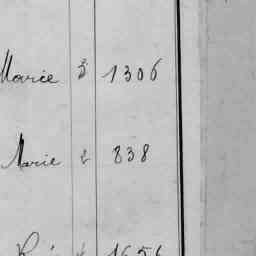 Marie 3 1306
Marie 2 838
1656